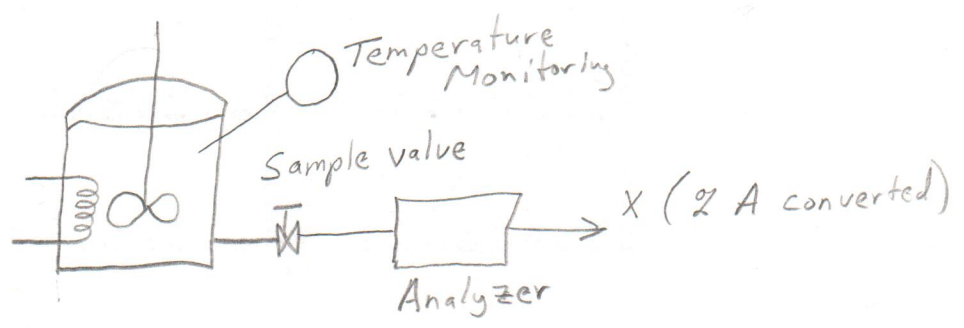 Temperature
Monitoring
Sample valve
X (% A converted)
Analyzer